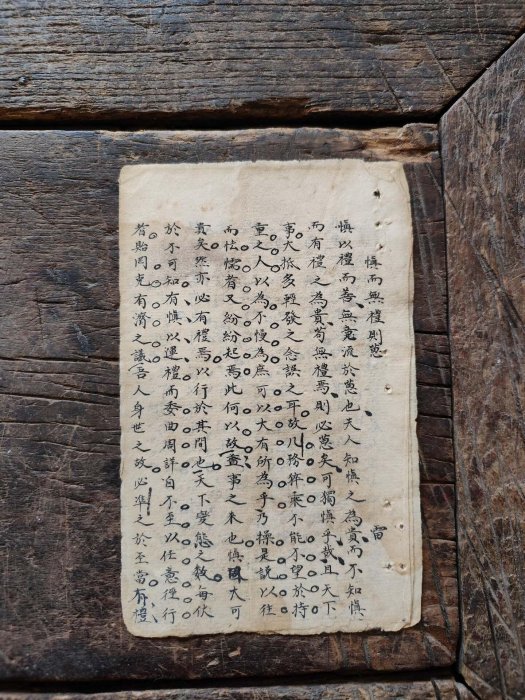 慎而無禮則葸
雷
慎以禮而善無竟流於葸也夫人知慎之為貴而不知慎
而有禮之為貴苟無禮焉則必葸矣可獨慎乎哉且天下
事大抵多輕發之念誤之耳故凡務猝乘不能不望於持
重之人以為不慢為庶可以大有所為乎乃操是說以往
而怯懦者又紛紛起焉此何以故盖事之来也慎固大可
貴矣然亦必有禮焉以行於其間也天下變態之數每伏
於不可知有慎以運禮而委曲周詳自不至以任意徑行
者貽岡克有濟之議吾人身世之故必準之於至當有禮